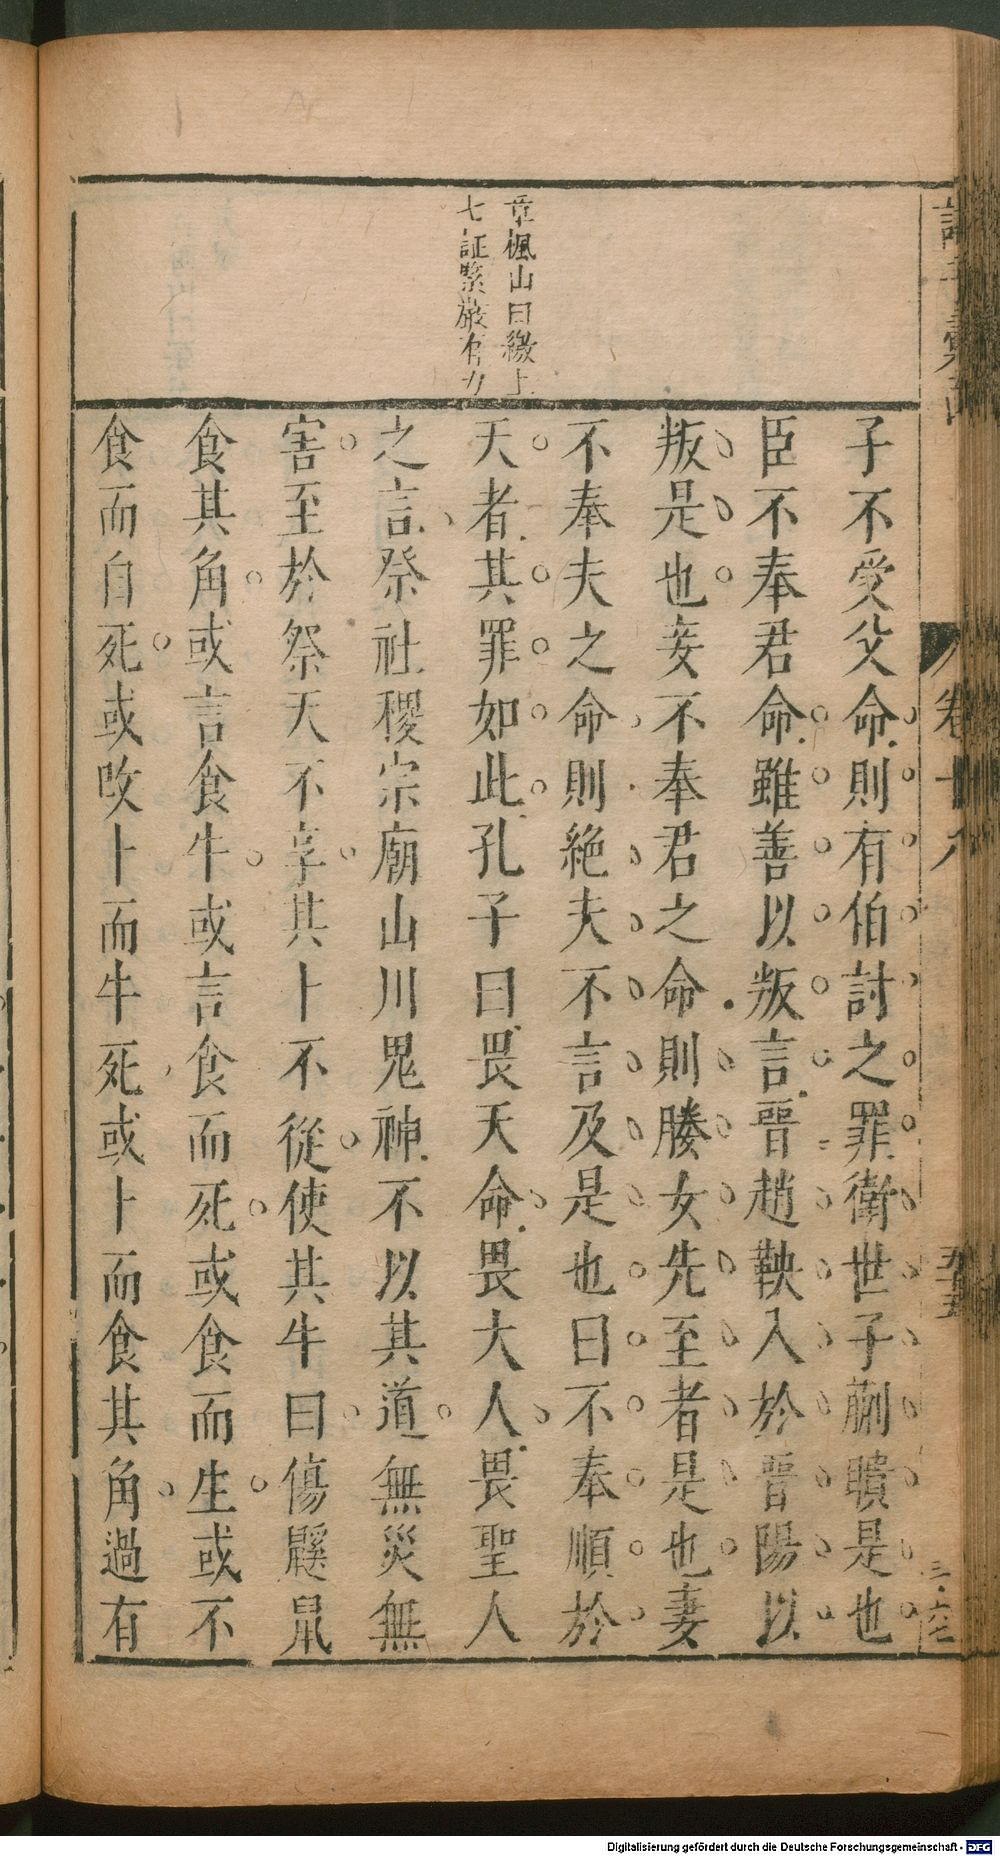 章楓山曰繳上
七証緊嚴有力
子不受父命則有伯討之罪衛世子蒯聵是也
臣不奉君命雖善以叛言晉趙鞅入於晉陽以
叛是也妾不奉君之命則媵女先至者是也妻
不奉夫之命則絶夫不言及是也曰不奉順於
天者其罪如此孔子曰畏天命畏大人畏聖人
之言祭社稷宗廟山川鬼神不以其道無災無
害至於祭天不享其卜不從使其牛曰傷鼷鼠
食其角或言食牛或言食而死或食而生或不
食而自死或攺卜而牛死或卜而食其角過有
卷十八
五十五
Digitalisierung gefördert durch die Deutsche Forschungsgemeinschaft - DFG